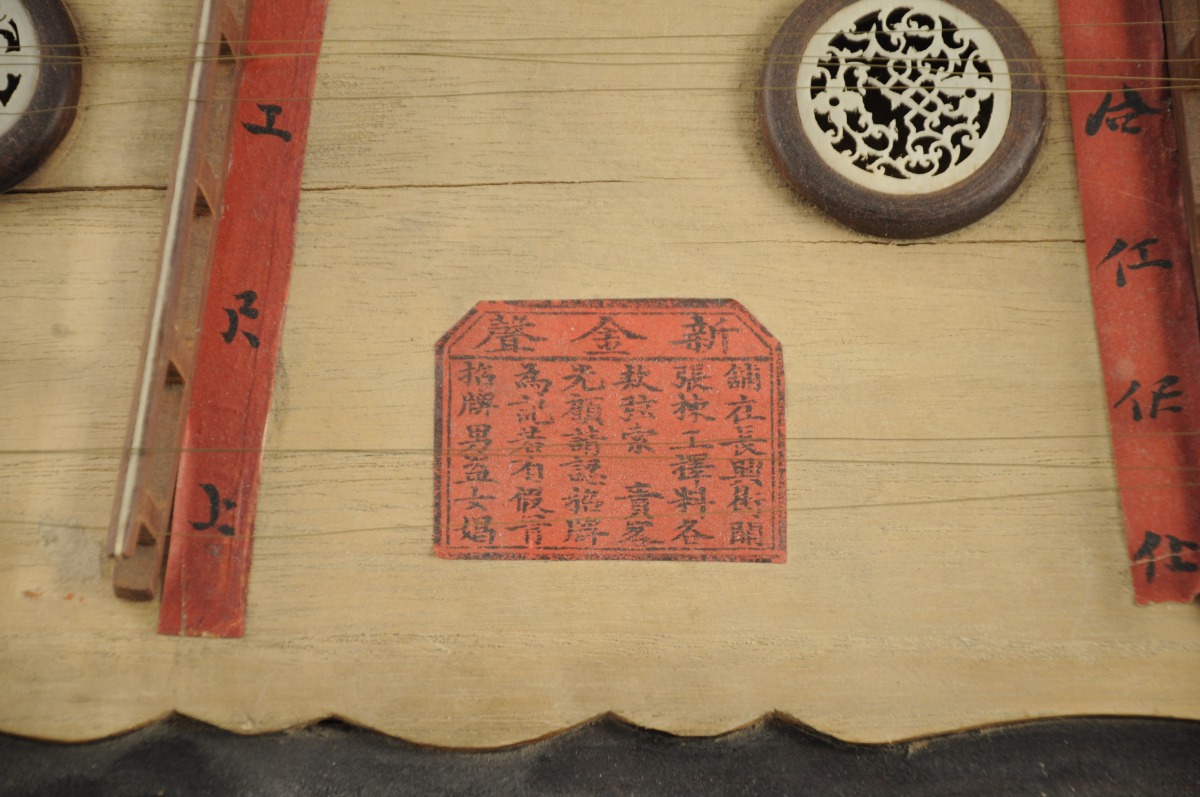 新金聲
舖在長興街開
張揀工擇料各
欵弦索 貴客
光顧請認招牌
為記若有假冒
招牌男盜女娼
仜
伬
仩
工
尺
上